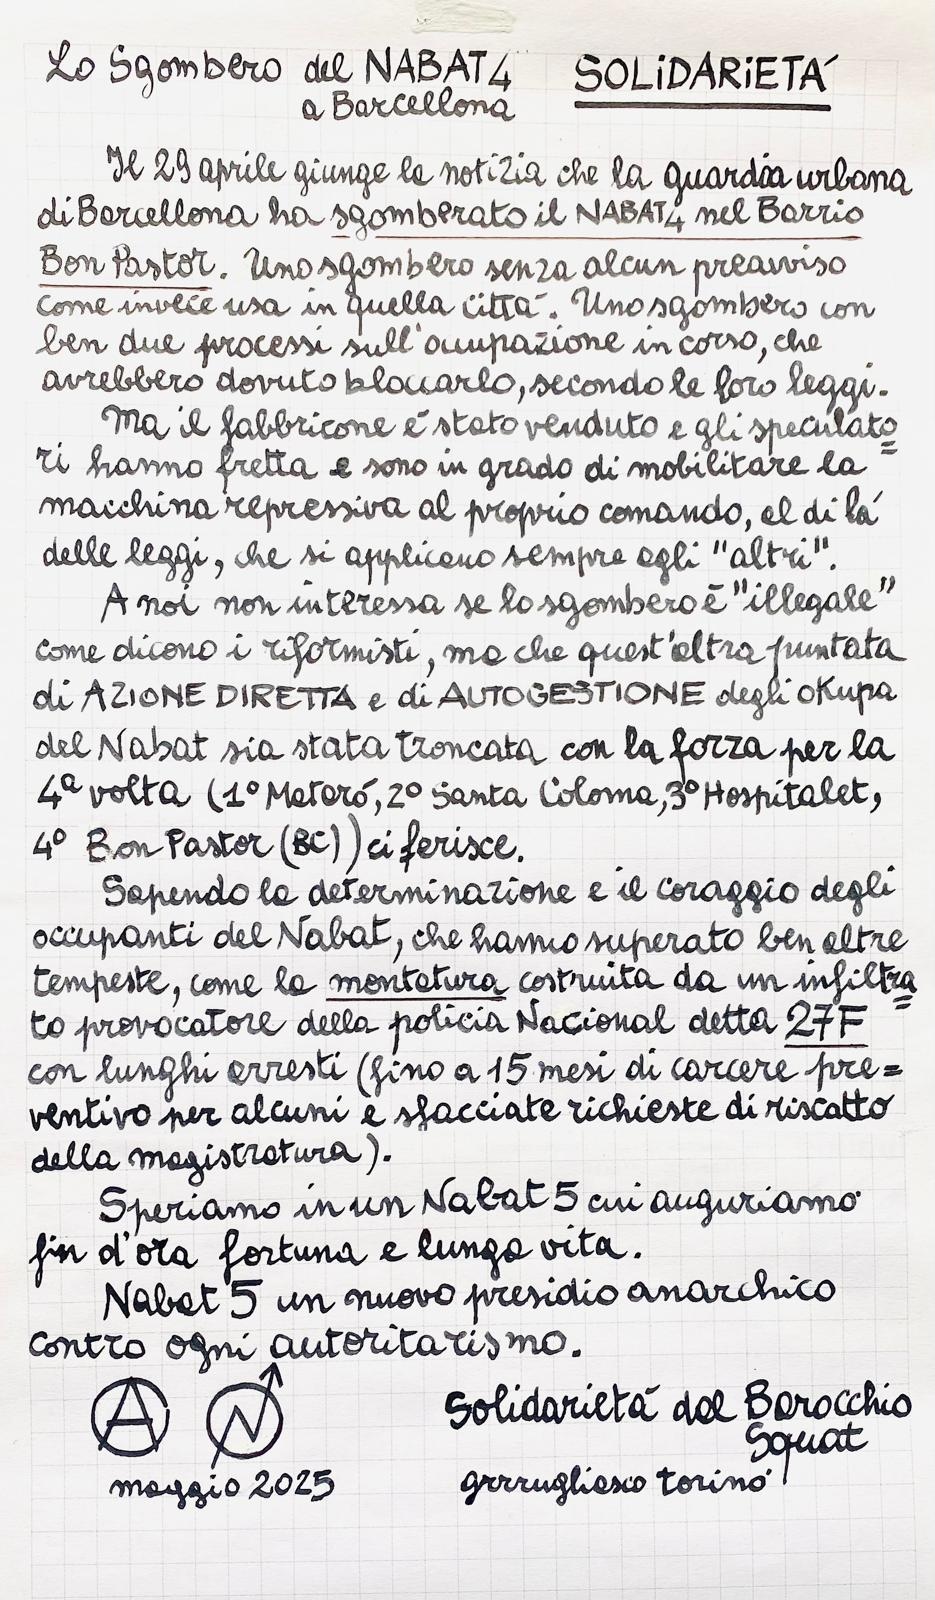 Lo Sgombero del NABAT4 SOLiDARiETÁ
a Barcellona
Il 29 aprile giunge la notizia che la guardia urbana
di Barcellona ha sgomberato il NABAT4 nel Barrio
Bon Pastor. Uno sgombero senza alcun preavviso
come invece usa in quella cittá. Uno sgombero con
ben due processi sull'occupazione in corso, che
avrebbero dovuto bloccarlo, secondo le loro leggi.
Ma il fabbricone é stato venduto e gli speculato=
ri hanno fretta e sono in grado di mobilitare la
macchina repressiva al proprio comando, al di lá
delle leggi, che si applicano sempre agli "altri".
A noi non interessa se lo sgombero é "illegale"
come dicono i riformisti, ma che quest'altra puntata
di AZIONE DIRETTA e di AUTOGESTIONE degli okupa
del Nabat sia stata troncata con la forza per la
4ª volta (1º Mataró, 2º Santa Coloma, 3º Hospitalet,
4º Bon Pastor (BC)) ci ferisce.
Sapendo la determinazione e il coraggio degli
occupanti del Nabat, che hanno superato ben altre
tempeste, come la montatura costruita da un infiltra=
to provocatore della policia Nacional detta 27F
con lunghi arresti (fino a 15 mesi di carcere pre=
ventivo per alcuni e sfacciate richieste di riscatto
della magistratura).
Speriamo in un Nabat 5 cui auguriamo
fin d'ora fortuna e lunga vita.
Nabat 5 un nuovo presidio anarchico
contro ogni autoritarismo.
Solidarietá dal Barocchio
Squat
maggio 2025 grrrugliasco torino